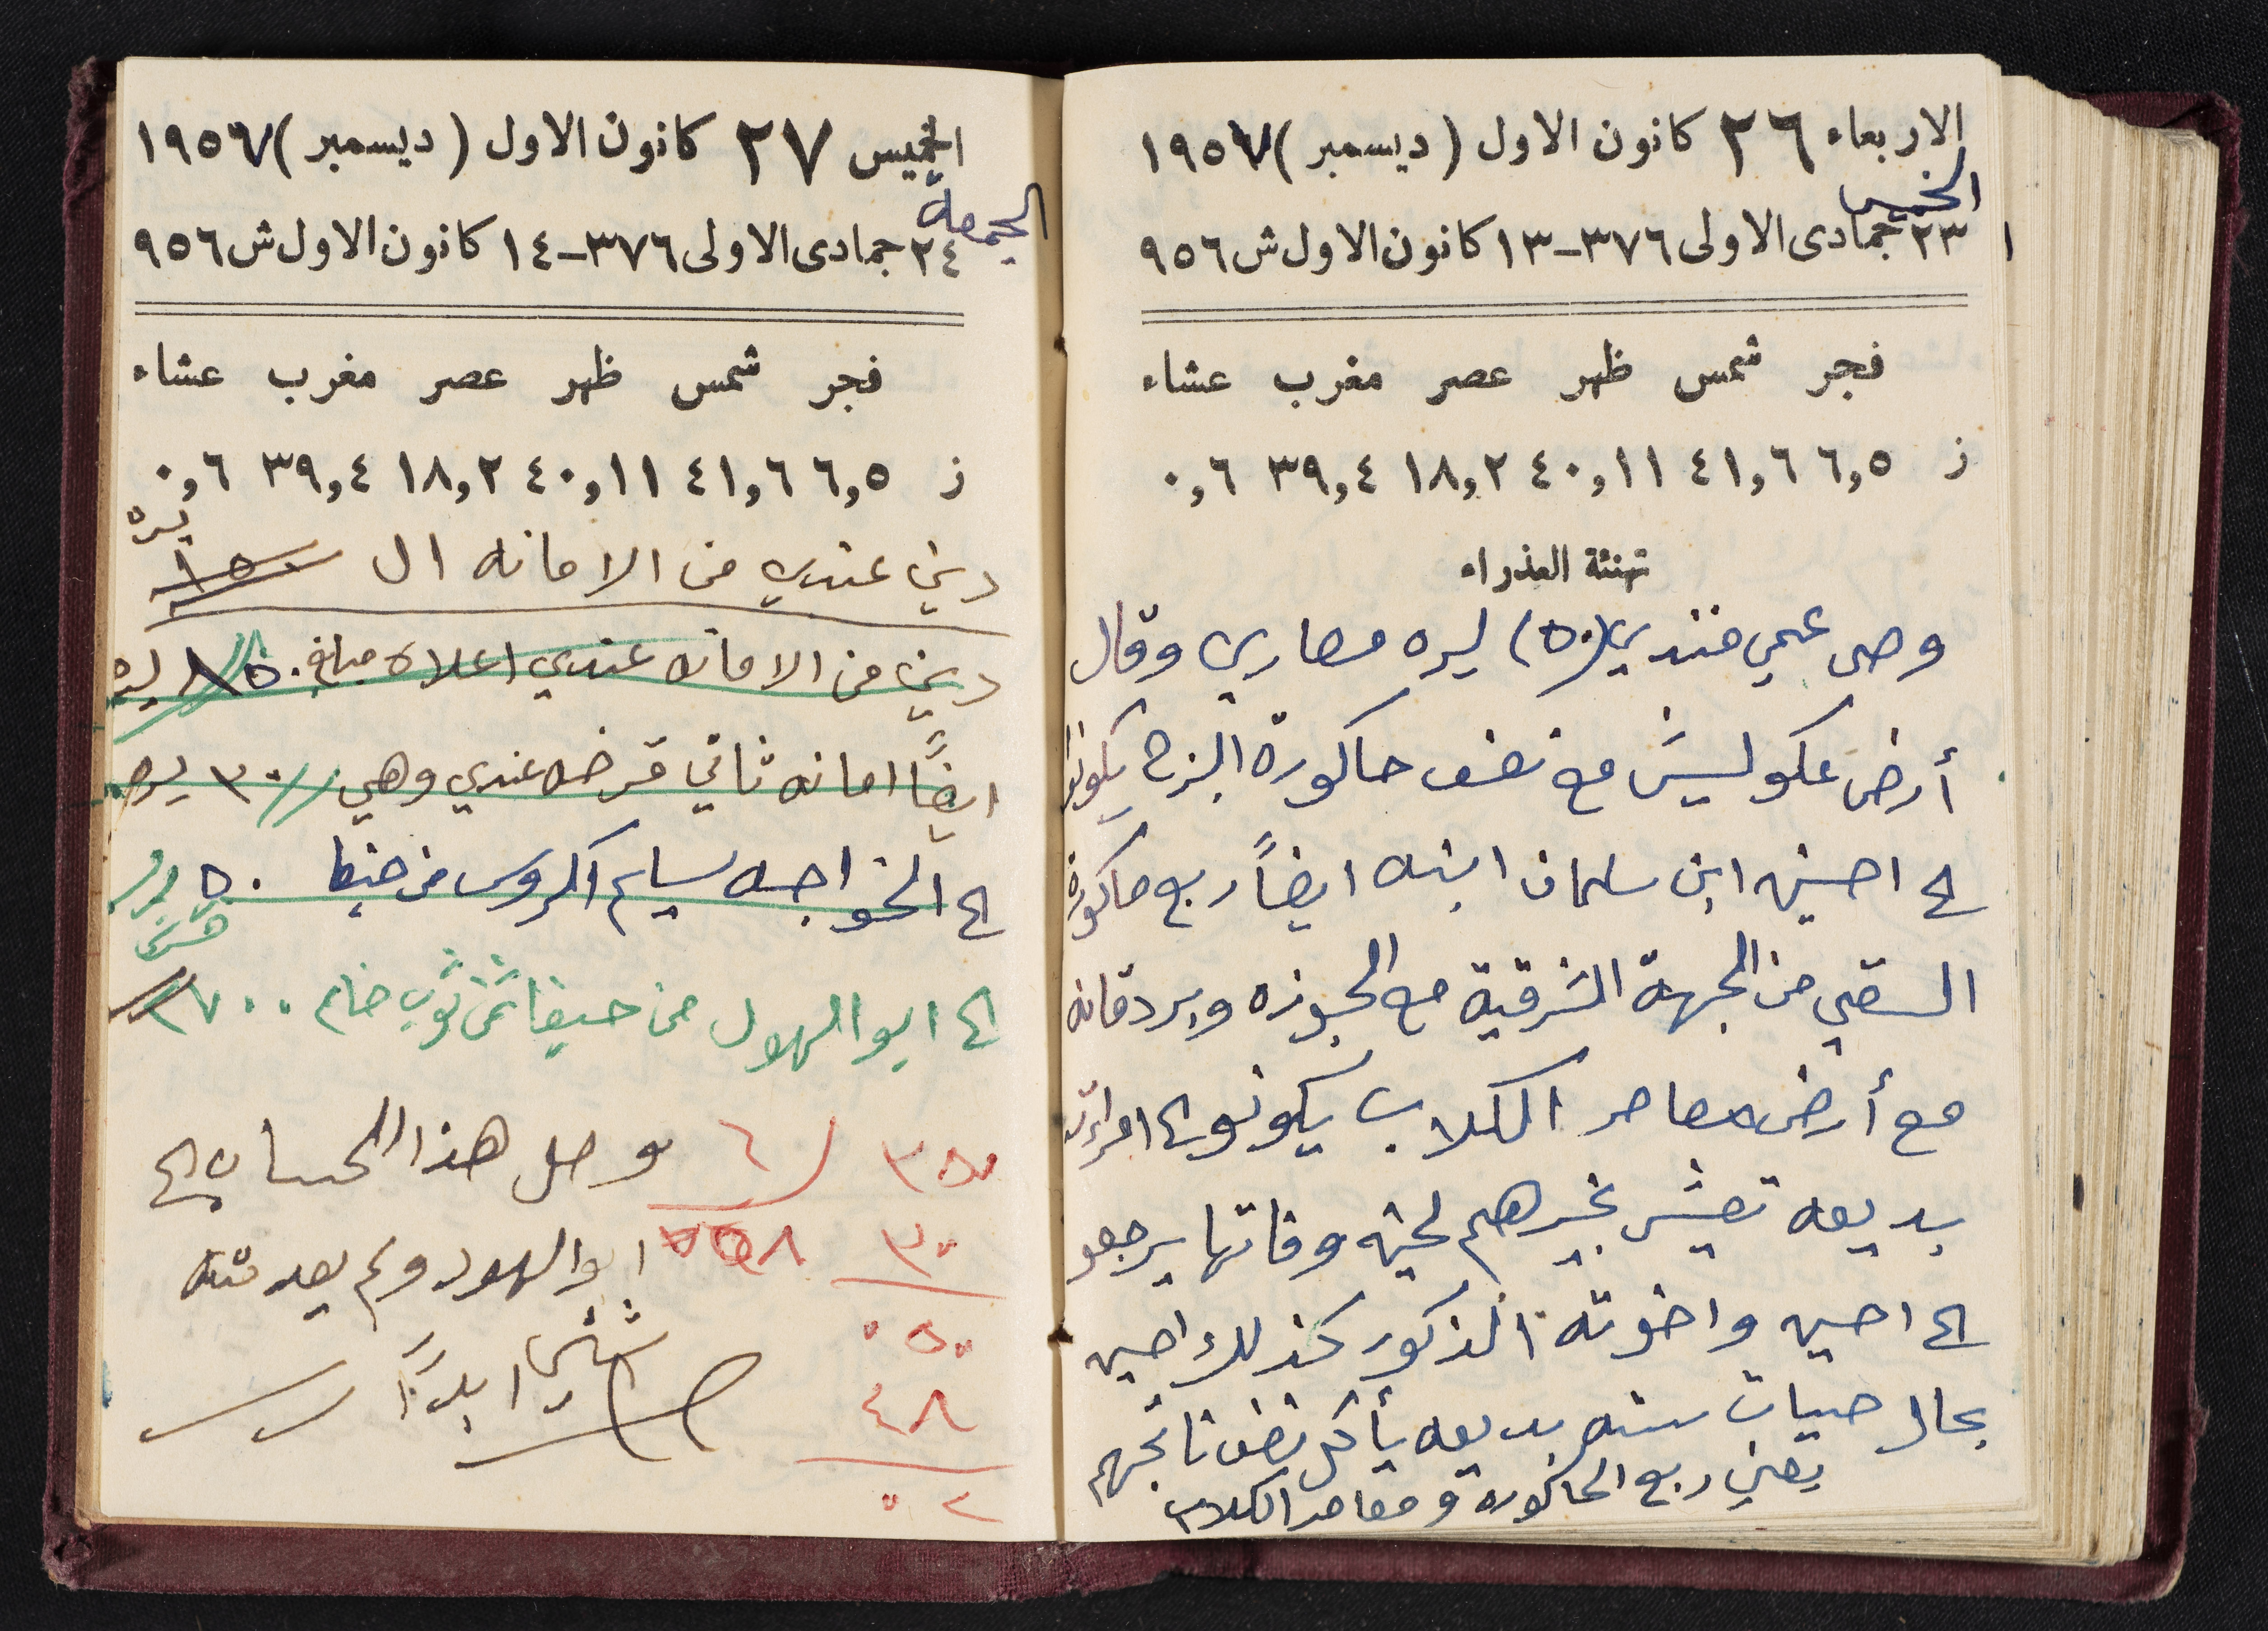 الاربعاء ٢٦ كانون الاول (ديسمبر) ١٩٥٧
الخميس
٢٣ جمادى الاولى ٣٧٦-١٣ كانون الاول ش ٩٥٦
فجر شمس ظهر عصر مغرب عشاء
ز ٦,٥ ٤١,٦ ٤٠,١١ ١٨,٢ ٣٩,٤ ٠,٦
تهنئة العذراء
وصى عمي فندي (٥٠) ليره مصاري وقال
أرض عكوليش مع نصف حاكورة البزح يكونو
الى احسين ابن سلمان ابنه ايضاً ربع حاكورة
السقي من الجهة الشرقية مع الجوزه وبردقانه
مع أرض معاصر الكلاب يكونو الى امرأته
بديعه تعيش بخيرهم لحين وفاتها يرجعو
الى احسين واخوته الذكور كذلك احسين
بحال حيات سته بديعه يأكل نصف ناتجهم
يعني ربع الحاكوره ومعاصر الكلاب
الخميس ٢٧ كانون الاول (ديسمبر) ١٩٥٧
الجمعة
٢٤ جمادى الاولى ٣٧٦-١٤ كانون الاول ش ٩٥٦
فجر شمس ظهر عصر مغرب عشاء
ز ٦,٥ ٤١,٦ ٤٠,١١ ١٨,٢ ٣٩,٤ ٠,٦
ليره
ديني عندي من الامانه ال ١٥٠
ديني من الامانه عندي اعلاه مبلغ ٨٥٠ ليره
ايضاً امانه ثاني قرضه عندي وهي ٣٠٠ ليره
الى الخواجه سليم الروس من حيفا ٥٠
الى ابو الهول من حيفا ثمن ثوب خام ٢٧٠٠
٣٥٠ / ٦ وصل هذا الحساب الى
٣٠ ابو الهول ولم يعد منه
٥٠ شيئ ابداً
٤٨
٢٠